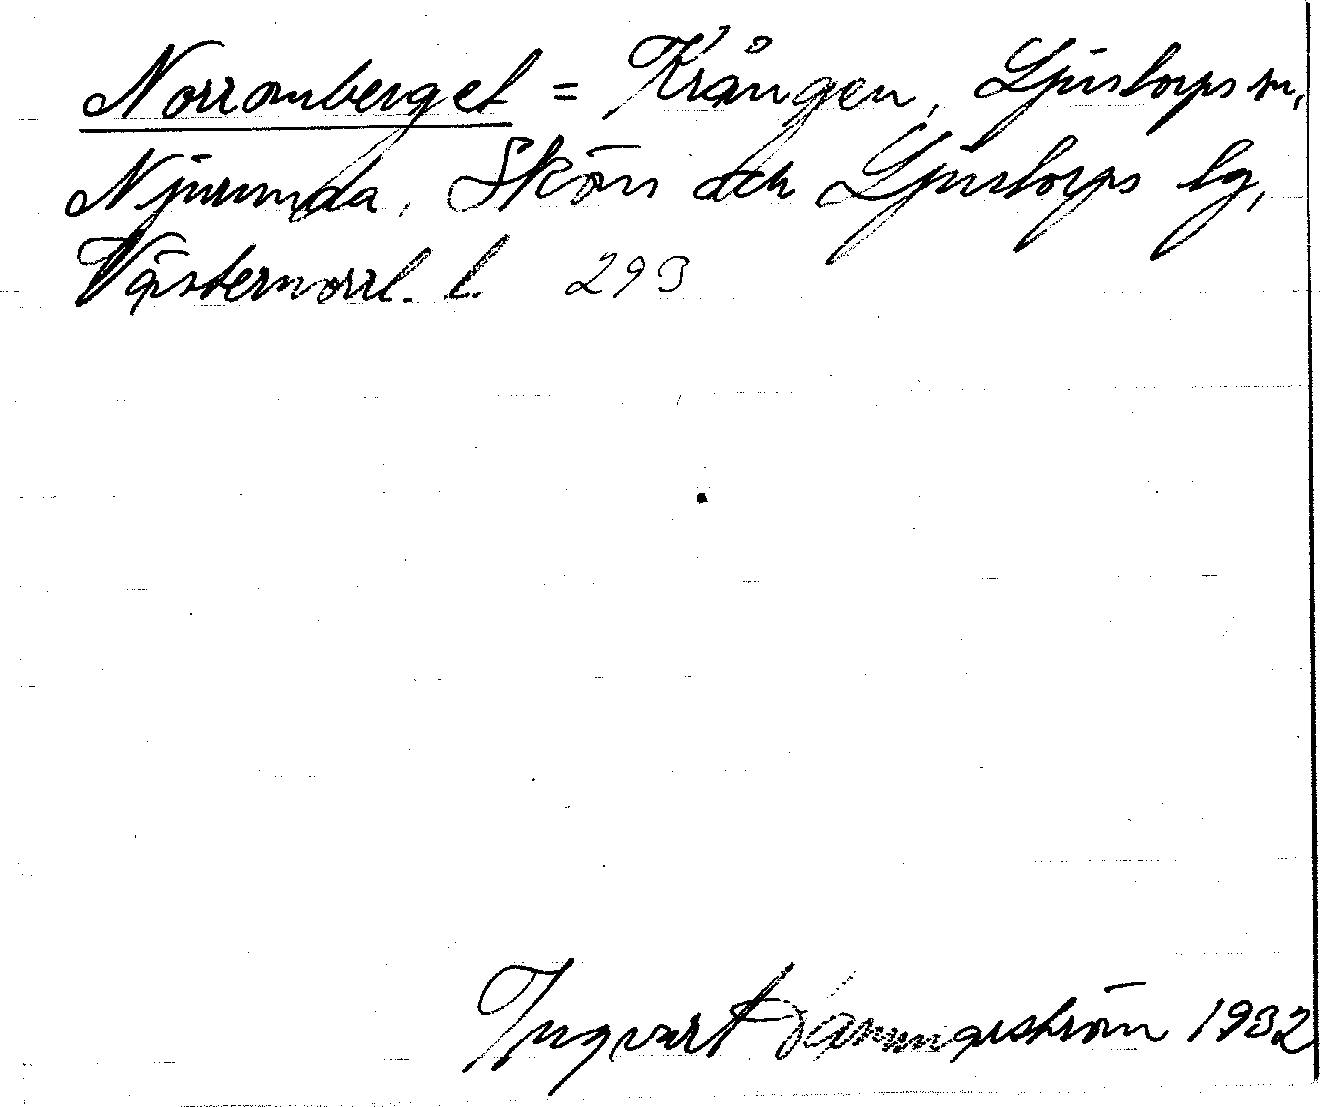 Norromberget = Krången, Ljustorps sn,
Njurunda, Sköns och Ljustorps tg,
Västernorrl. l. 293
Ingvart 1932